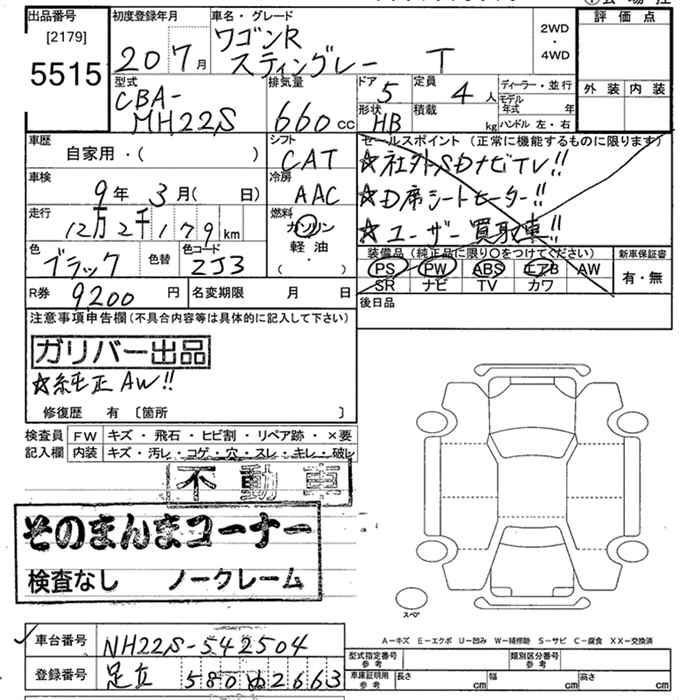 出品番号
[2179]
5515
初度登録年月
20 7月
車名・グレード
ワゴンR
スティングレー T
2WD
4WD
評価点
外装 内装
型式
CBA-
MH22S
排気量
660 cc
ドア
5
定員
4人
形状
HB
積載
kg
ディーラー・並行
モデル年式 年
ハンドル 左・右
車歴
自家用・( )
シフト
CAT
セールスポイント (正常に機能するものに限ります)
☆社外SDナビTV!!
☆D席シートヒーター!!
☆ユーザー買取車!!
車検
9年 3月( 日)
冷房
AAC
走行
12万2千179km
燃料
ガソリン
軽油
( ・ )
色
ブラック
色替
色コード
ZJ3
装備品 (純正品に限り○をつけてください)
PS PW ABS エアB AW
SR ナビ TV カワ
新車保証書
有・無
R券 9200円
名変期限 月 日
後日品
注意事項申告欄(不具合内容等は具体的に記入して下さい)
ガリバー出品
☆純正AW!!
修復歴 有 〔箇所 〕
検査員 FW キズ・飛石・ヒビ割・リペア跡・×要
記入欄 内装 キズ・汚レ・コゲ・穴・スレ・キレ・破レ
不動車
そのまんまコーナー
検査なし ノークレーム
スペア
A-キズ E-エクボ U-凹み W-補修跡 S-サビ C-腐食 XX-交換済
車台番号 MH22S-542504
登録番号 足立 580 ゆ 2663
型式指定番号 参考
類別区分番号 参考
車庫証明用 参考 長さ cm 幅 cm 高さ cm